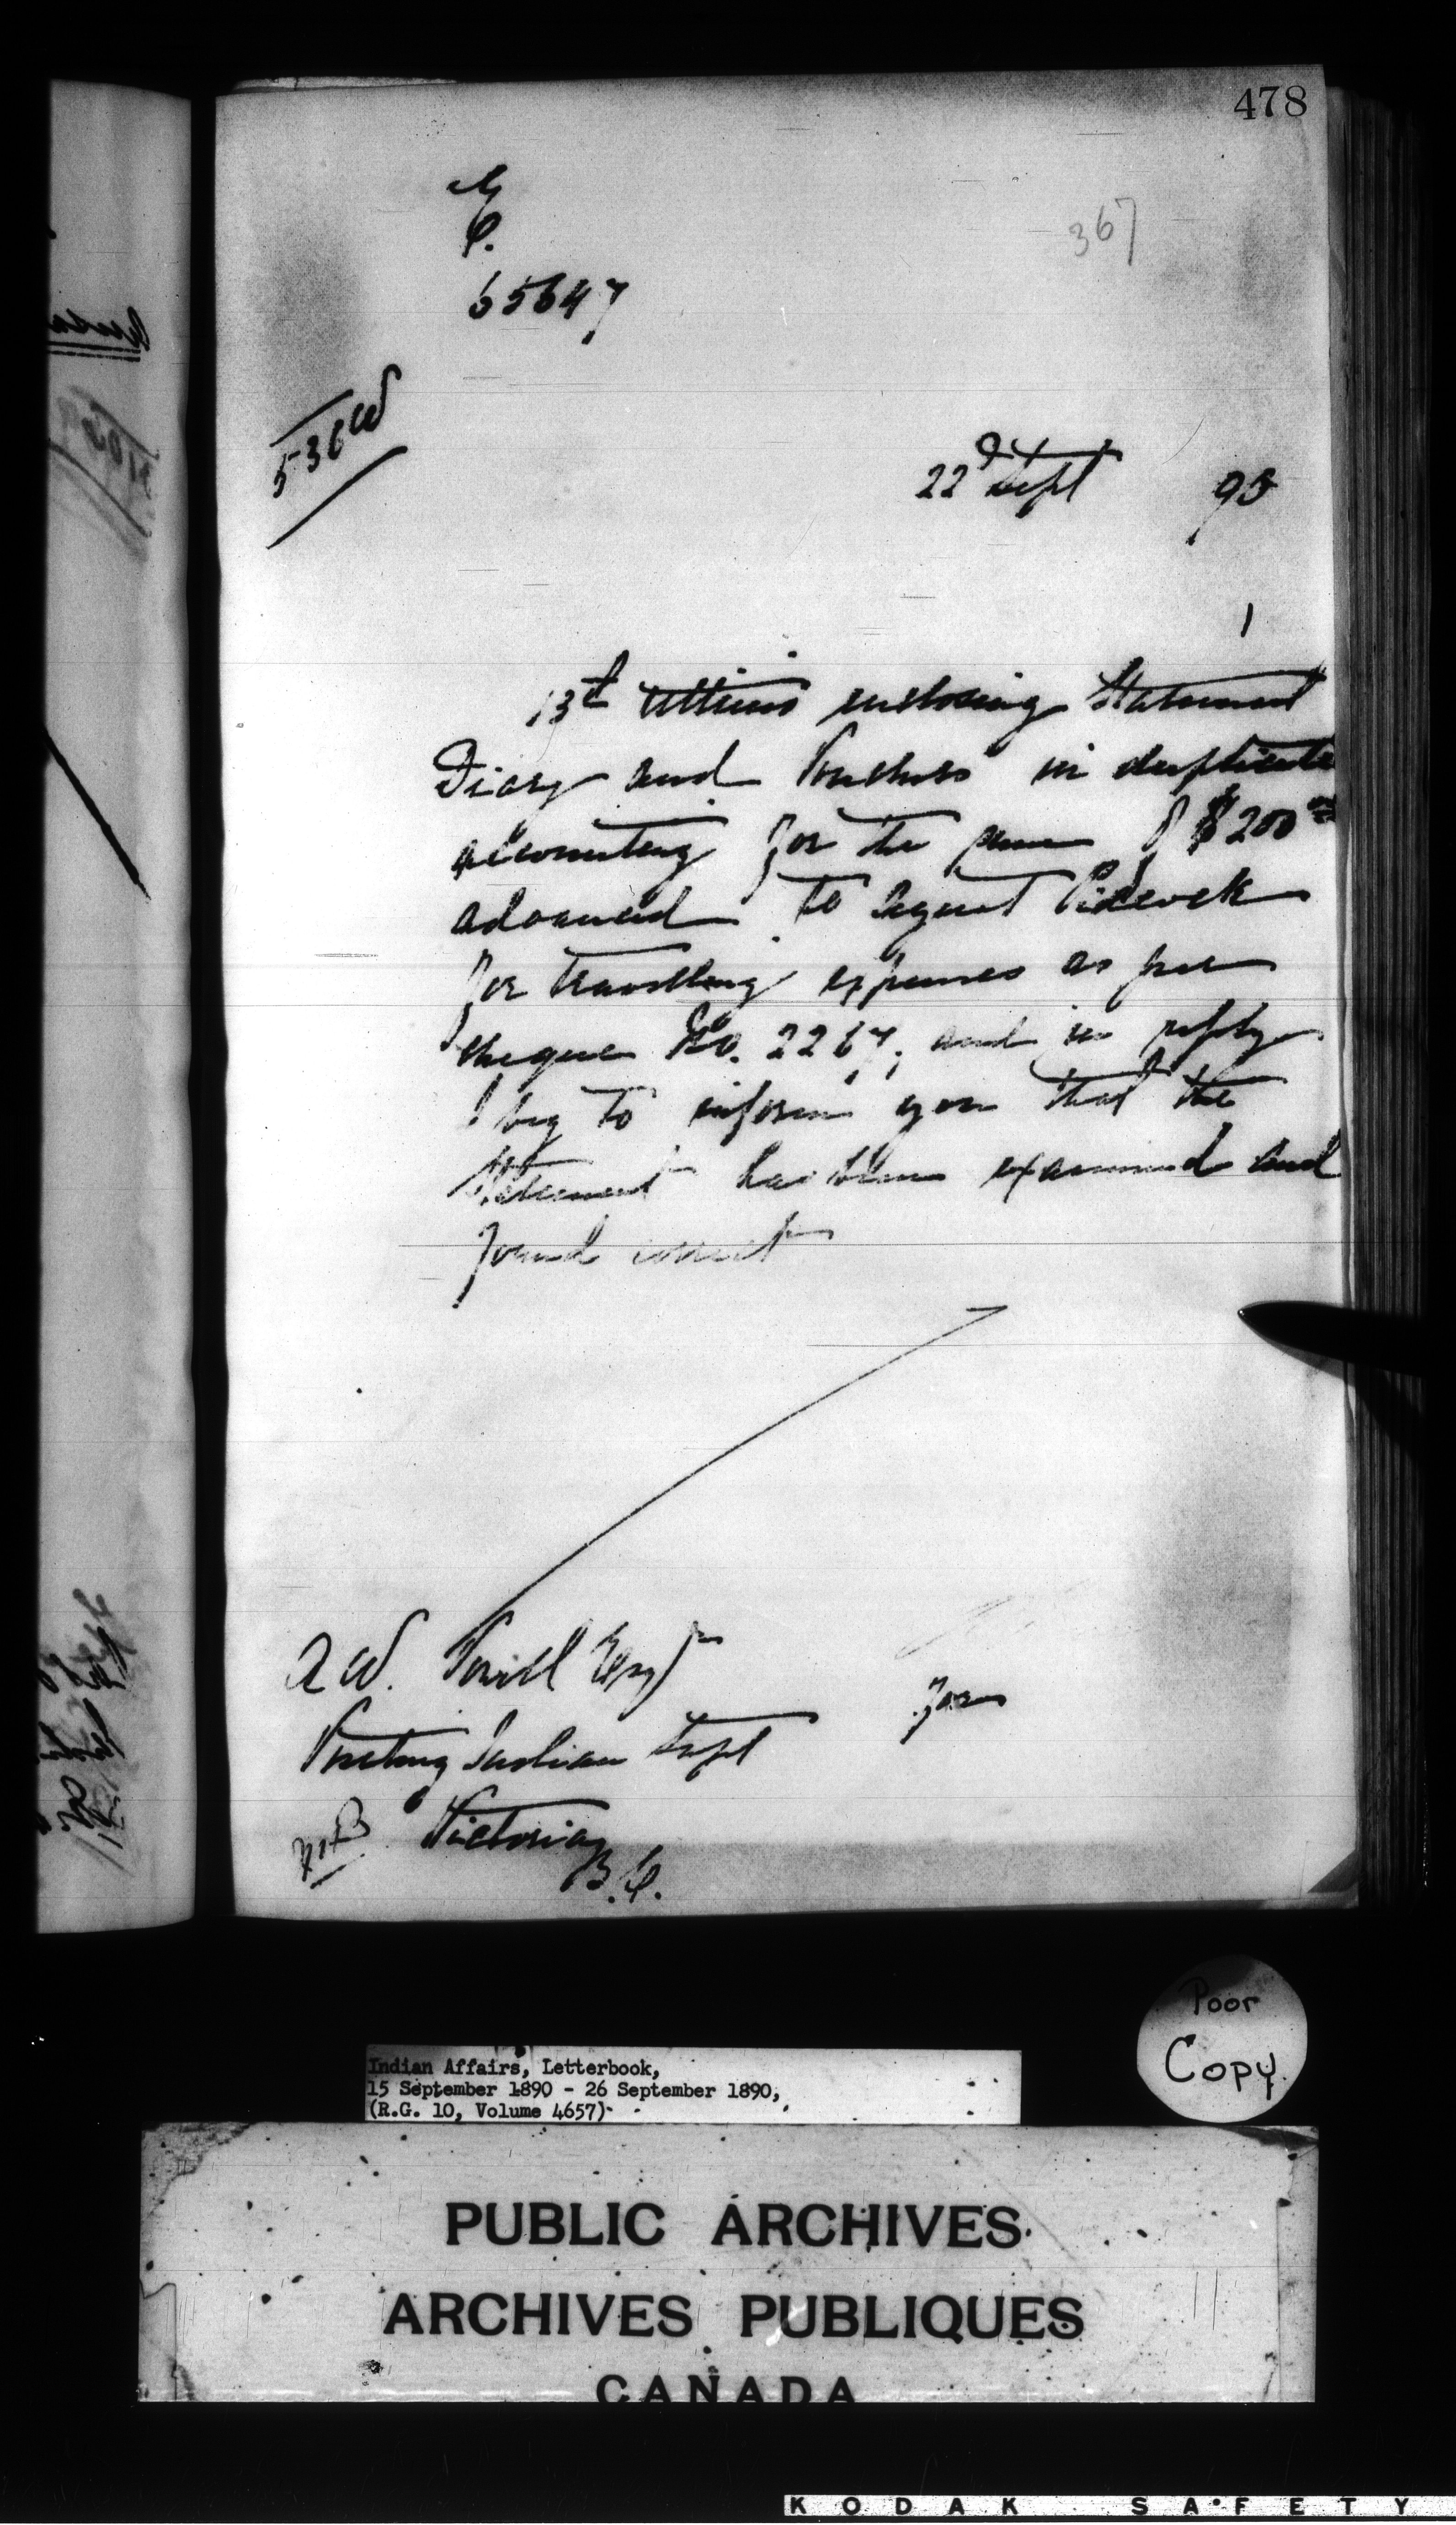 478
367
65647
536 W
22d Sept 90
1
13th Ultimo enclosing Statement
Diary and Vouchers in duplicate
accounting for the sum of $200
advanced to Agent Pidcock
for travelling expenses as per
cheque No. 2267, and in reply
I beg to inform you that the
Statement has been examined and
found correct
Powell Esqr
Indian Supt
Victoria
B.C.
Poor
Copy
Indian Affairs, Letterbook,
15 September 1890 - 26 September 1890,
(R.G. 10, Volume 4657)
PUBLIC ARCHIVES
ARCHIVES PUBLIQUES
CANADA
KODAK SAFETY